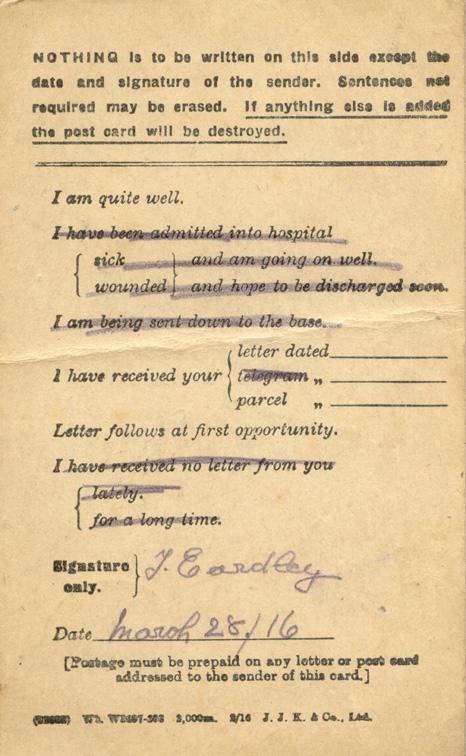 NOTHING is to be written on this side except the
date and signature of the sender. Sentences not
required may be erased. If anything else is added
the post card will be destroyed.
I am quite well.
I have been admitted into hospital
sick and am going on well.
wounded and hope to be discharged soon.
I am being sent down to the base.
letter dated
I have received your telegram „
parcel „
Letter follows at first opportunity.
I have received no letter from you
lately.
for a long time.
Signature
only. Eardley
Date March 28/16
[Postage must be prepaid on any letter or post card
addressed to the sender of this card.]
3,000m. 2/16 J. J. K. & Co., Ltd.